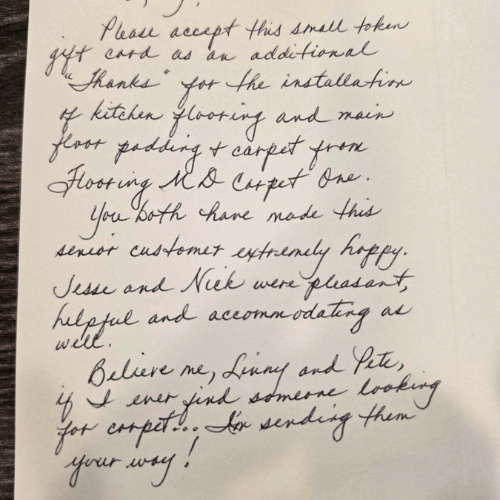 Please accept this small token
gift card as an additional
"Thanks" for the installation
of kitchen flooring and main
floor padding & carpet from
Flooring M.D. Carpet One.
You both have made this
senior customer extremely happy.
Jesse and Nick were pleasant,
helpful and accommodating as
well.
Believe me, Linny and Pete,
if I ever find someone looking
for carpet... I'm sending them
your way!